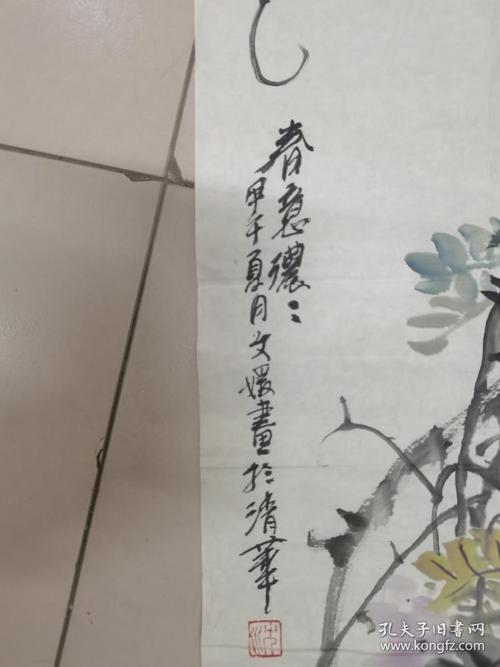 春意濃〻
甲午夏月文媛畫於清華
孔夫子旧书网
www.kongfz.com